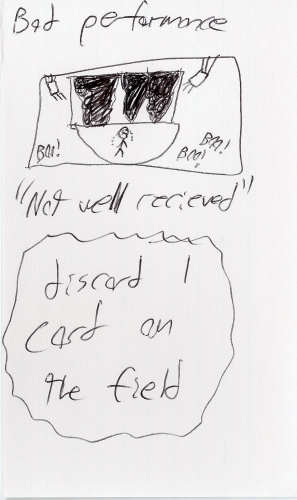 Bad performance
Boo!
Boo!
Boo!
"Not well recieved"
discard 1
card on
the field